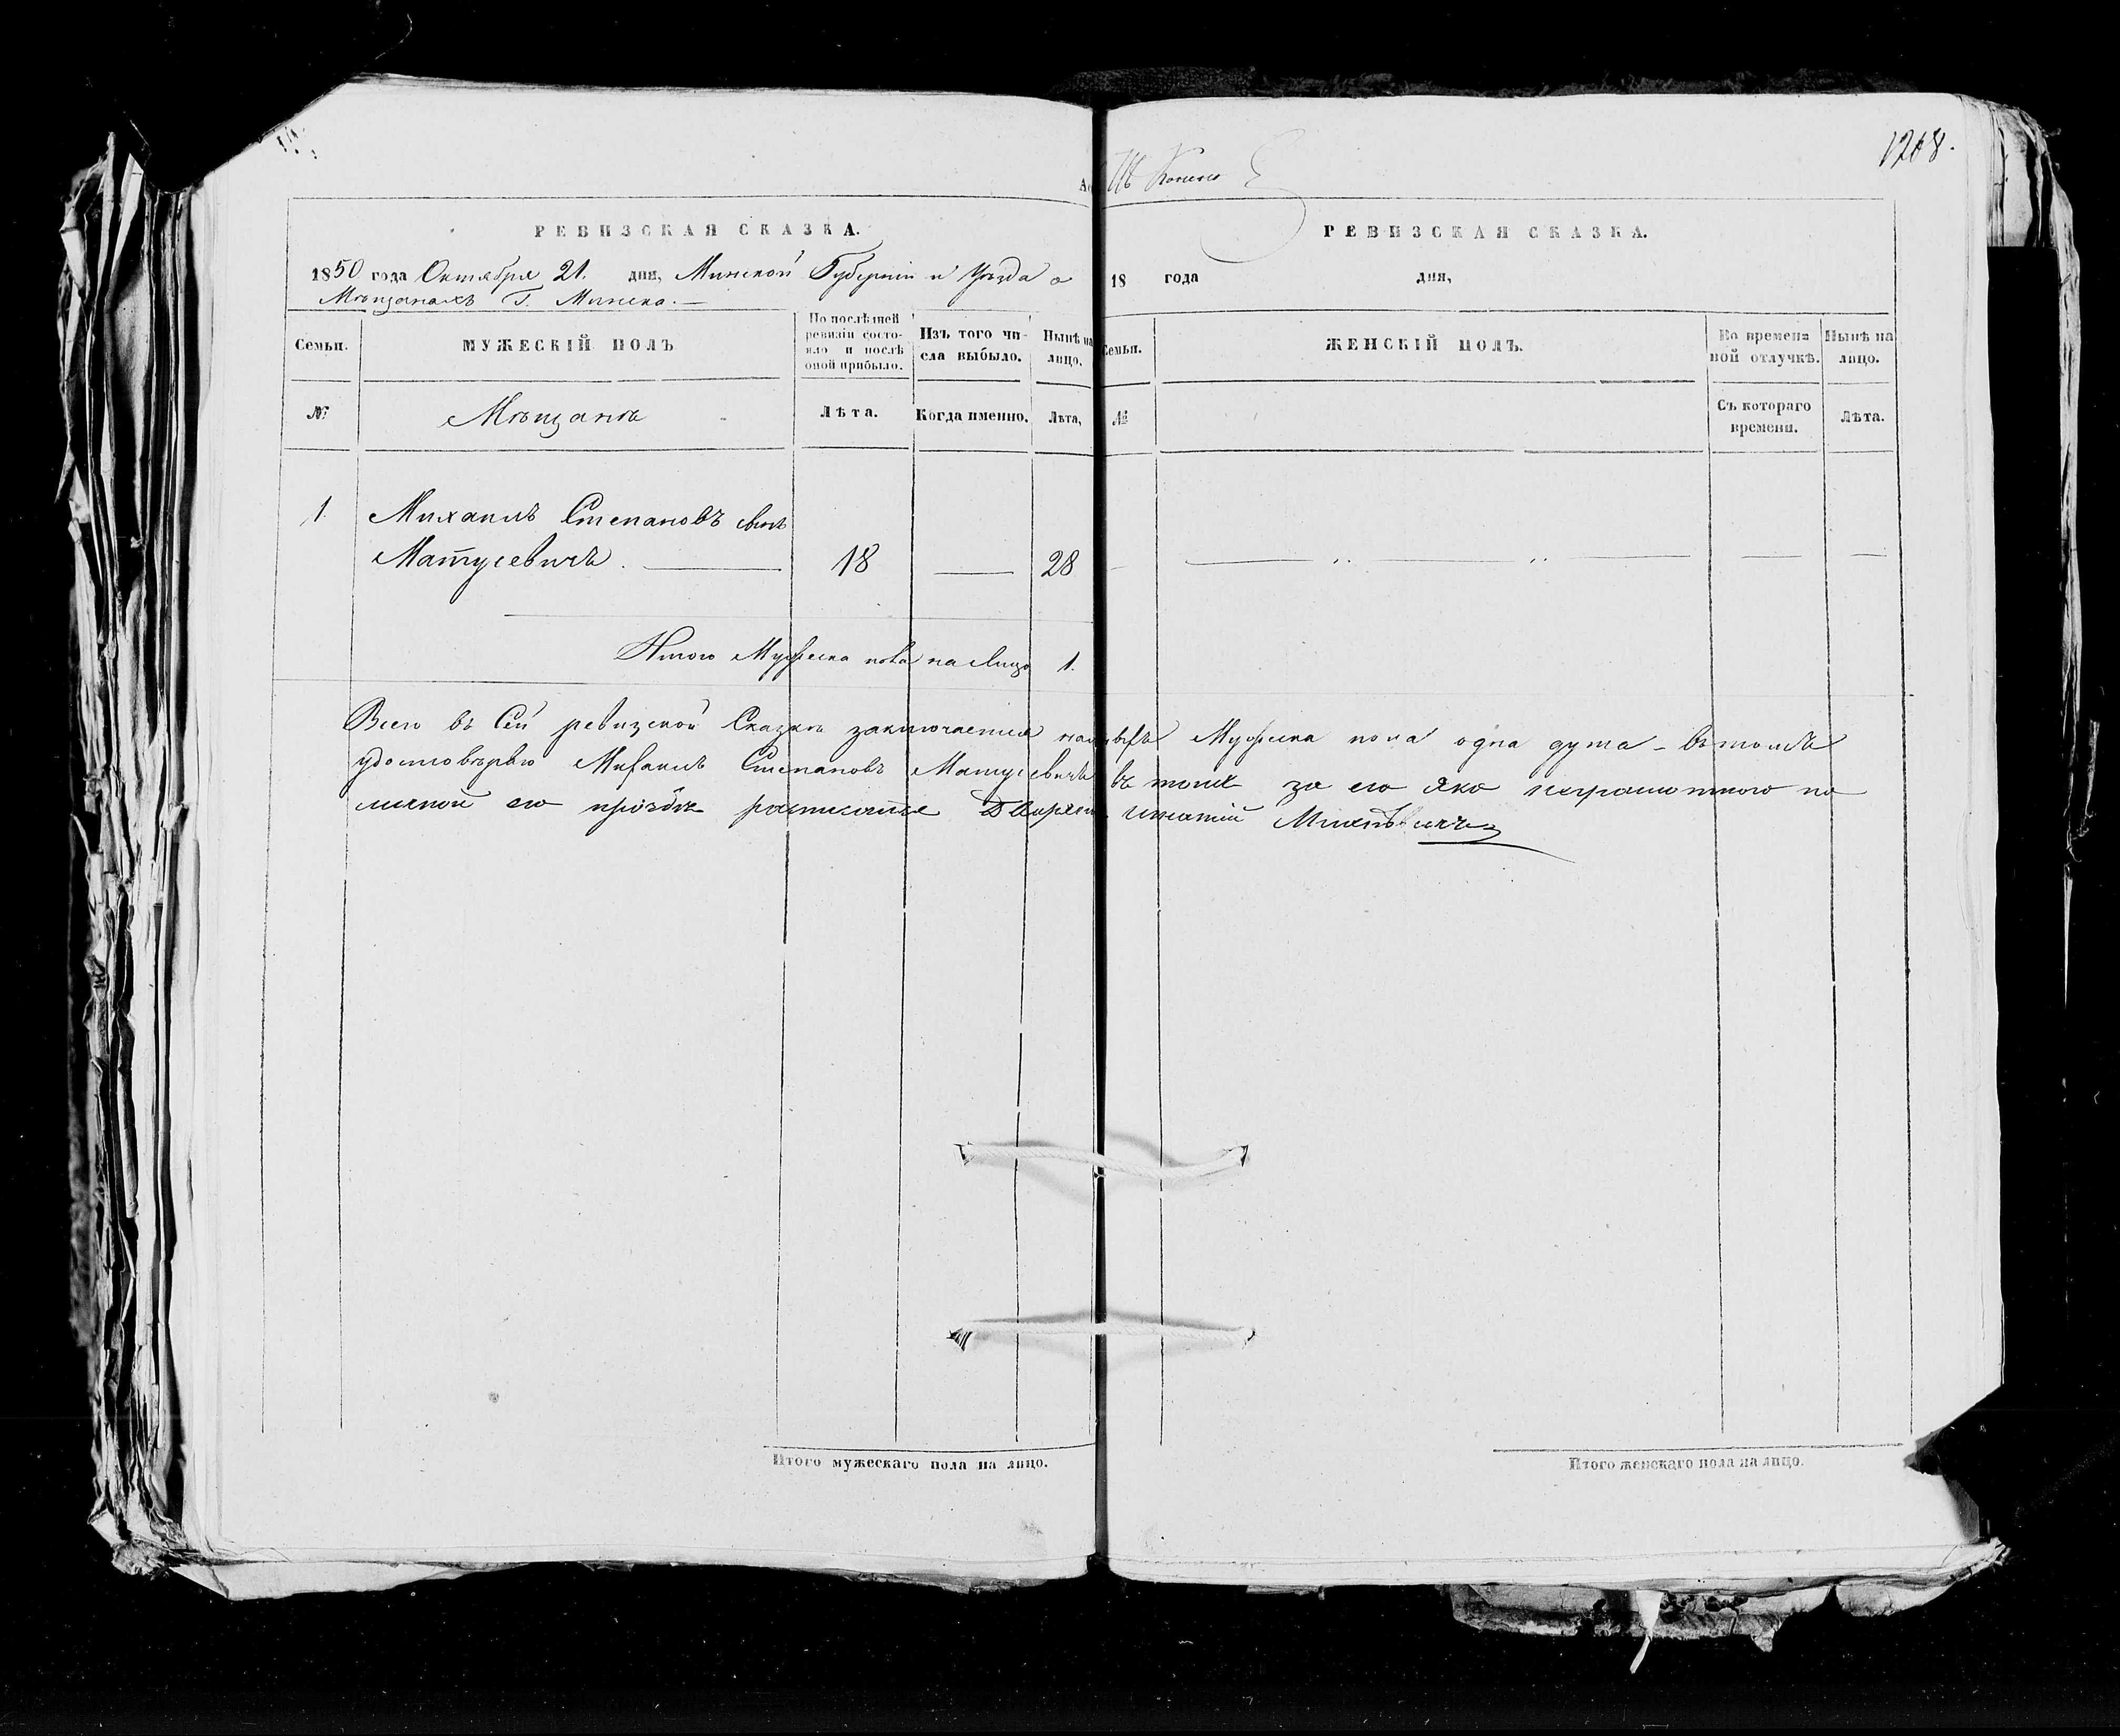 1268.
РЕВИЗСКАЯ СКАЗКА.
1850 года Октября 21. дня, Минской Губерніи и Уѣзда о
Мѣщанахъ Г. Минска.
Семьи.
МУЖЕСКІЙ ПОЛЪ
По послѣдней
ревизіи состо-
яло и послѣ
оной прибыло.
Изъ того чи-
сла выбыло.
Нынѣ на
лицо.
№
Мѣщане
Лѣта.
Когда именно.
Лѣта,
1. Михаилъ Степановъ сынъ
Матусевичъ. 18 28
Итого Мужеска пола на лицо 1.
Итого мужескаго пола на лицо.
РЕВИЗСКАЯ СКАЗКА.
18 года дня,
Семьи.
ЖЕНСКІЙ ПОЛЪ.
Во времен-
ной отлучкѣ.
Нынѣ на
лицо.
№
Съ котораго
времени.
Лѣта.
Всего въ Сей ревизской Сказкѣ заключается Мужеска пола одна душа - въ томъ
удостовѣряю Михаилъ Степановъ Матусевичъ въ томъ за его яко неграмотного по
личной его прозбѣ росписался
Итого женскаго пола на лицо.